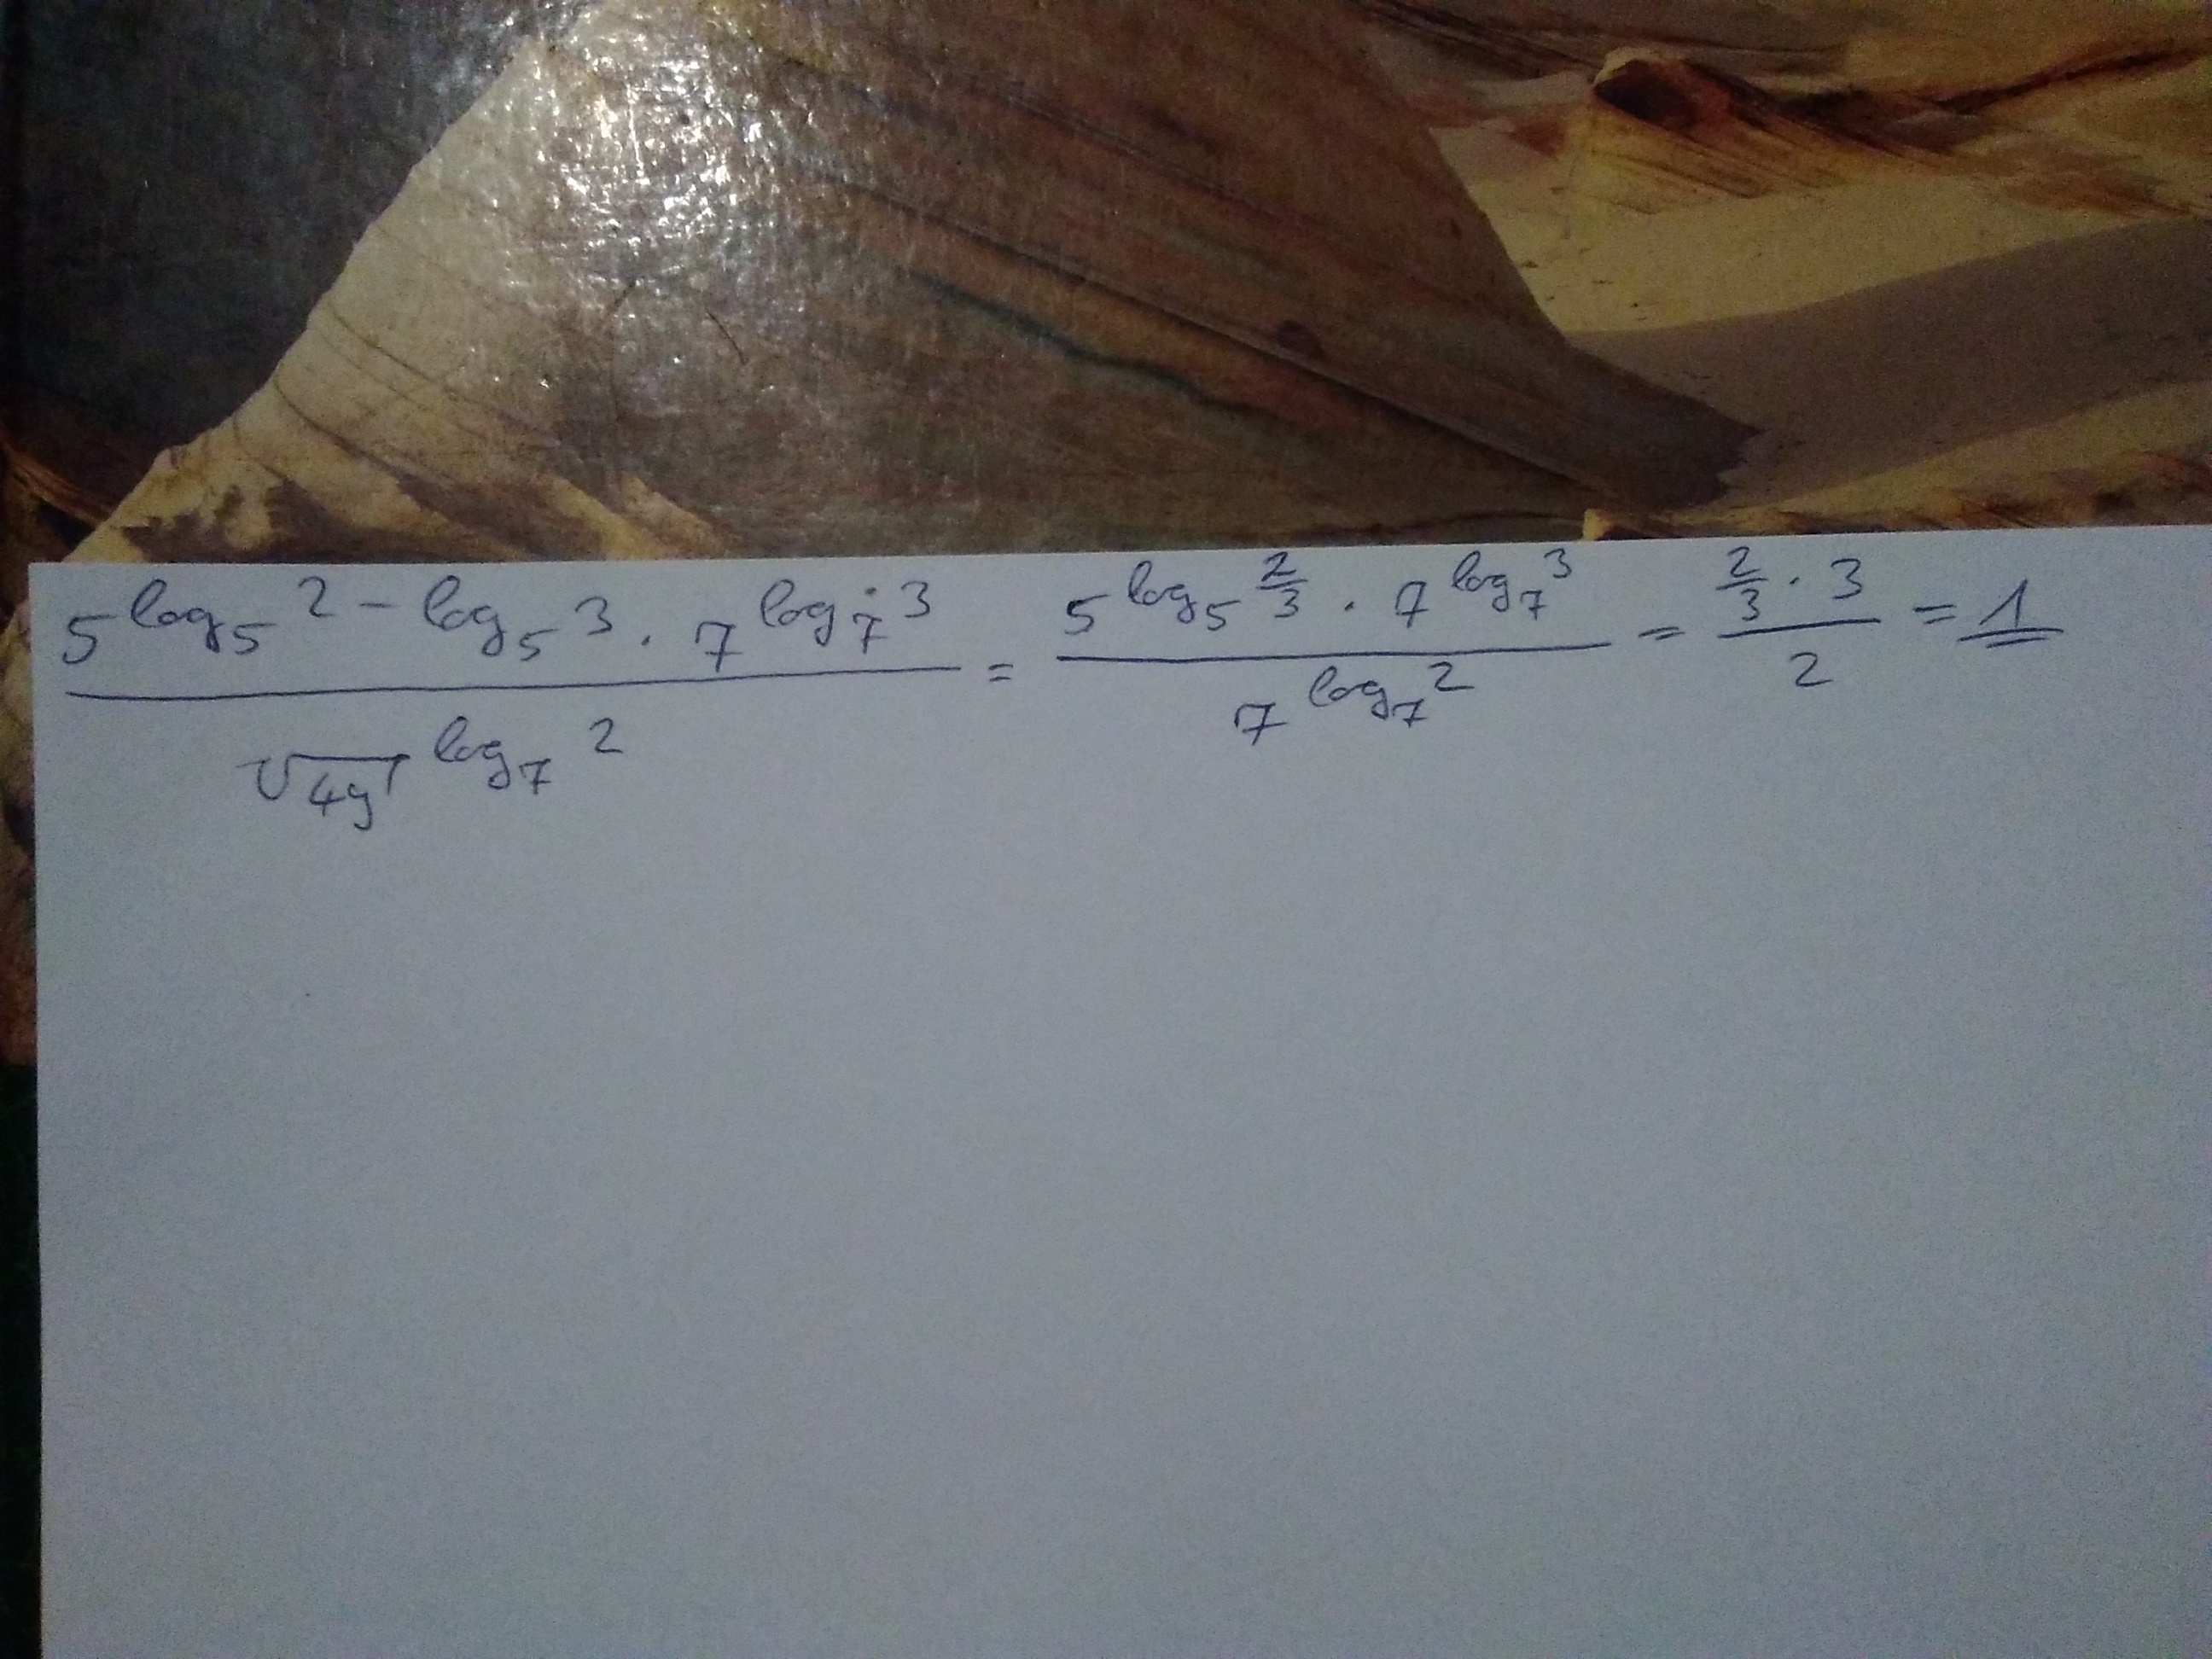 5^{log_5 2 - log_5 3} · 7^{log_7 3} / √49^{log_7 2} = 5^{log_5 2/3} · 7^{log_7 3} / 7^{log_7 2} = 2/3 · 3 / 2 = 1